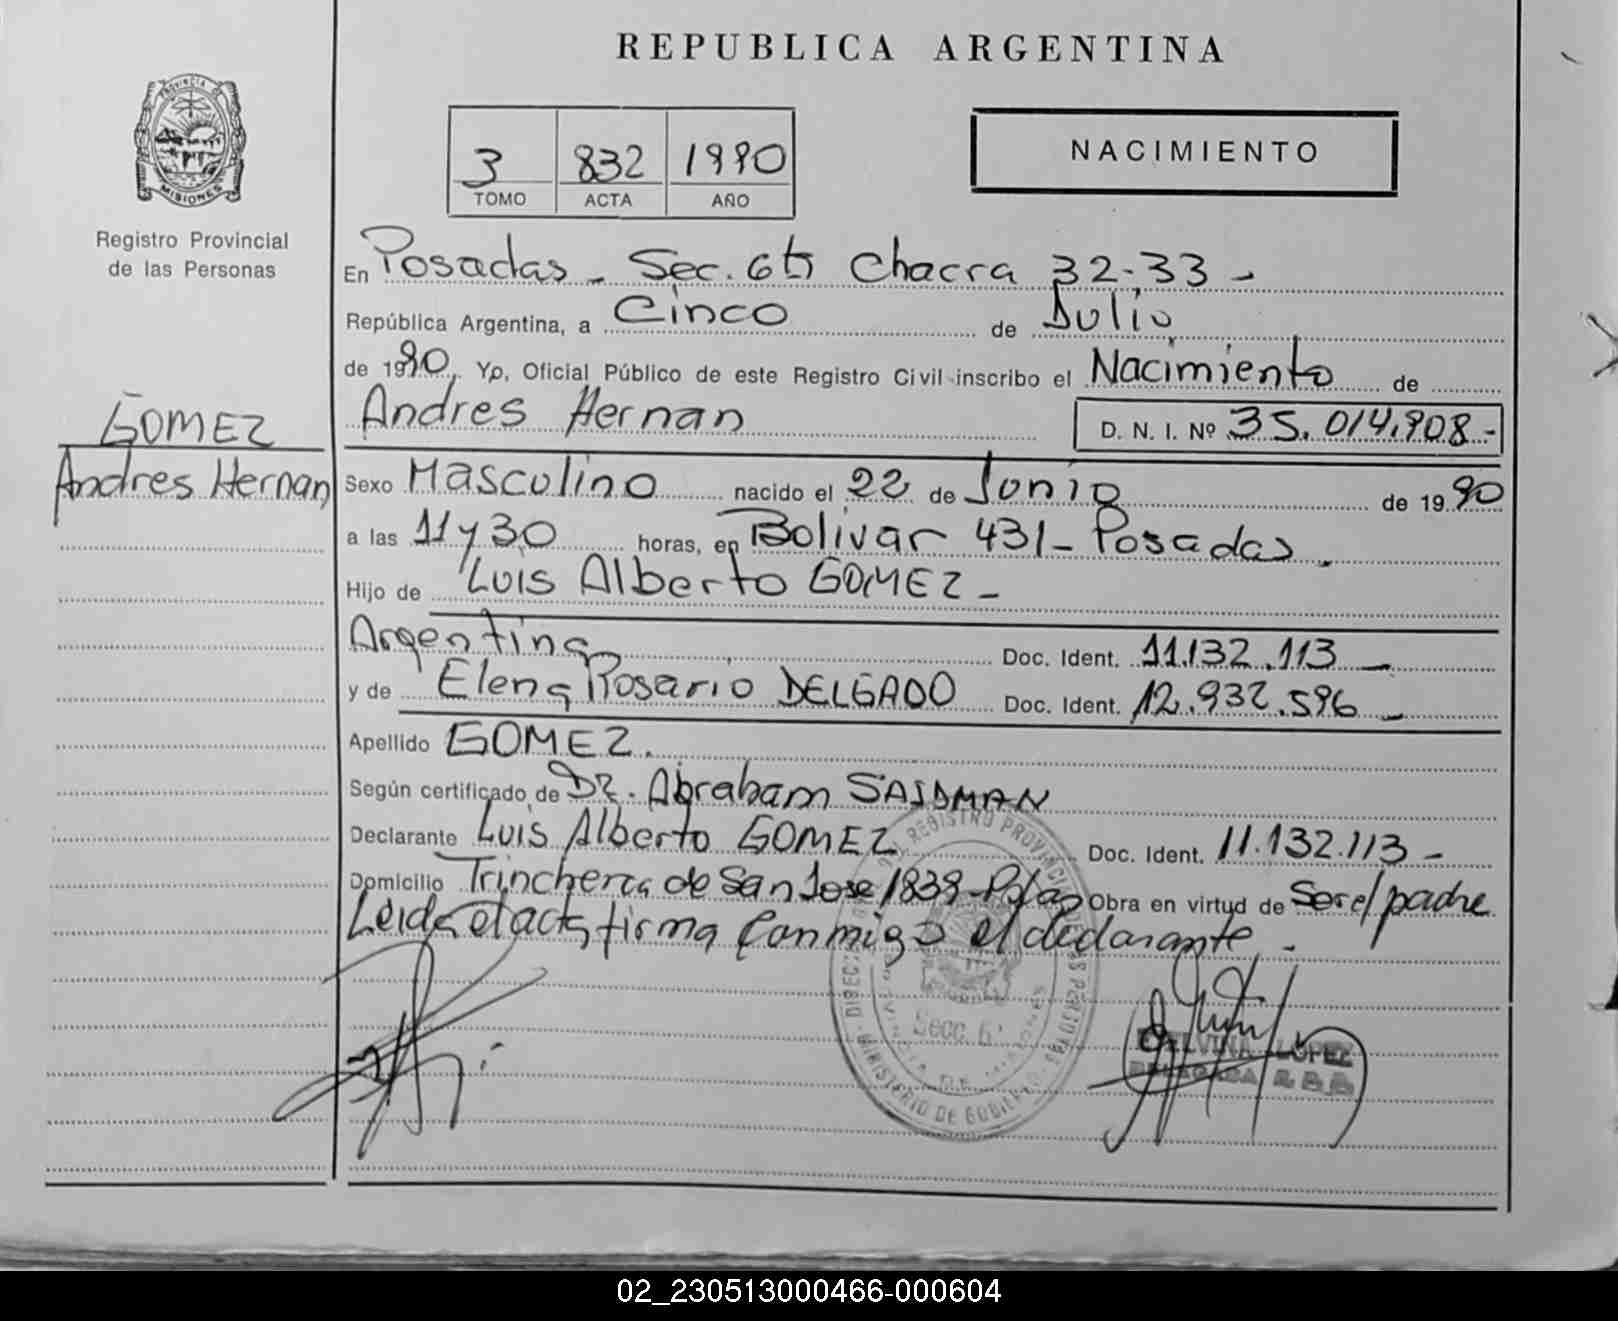 REPUBLICA ARGENTINA
PROVINCIA DE
MISIONES
Registro Provincial
de las Personas
3 832 1990
TOMO ACTA AÑO
NACIMIENTO
En Posadas - Sec. 6ta Chacra 32-33 -
República Argentina, a Cinco de Julio
de 1990. Yo, Oficial Público de este Registro Civil inscribo el Nacimiento de
Andres Hernan D. N. I. Nº 35.014.908-
GOMEZ
Andres Hernan
Sexo Masculino nacido el 22 de Junio de 1990
a las 11 y 30 horas, en Bolivar 431 - Posadas
Hijo de Luis Alberto GOMEZ -
Argentina Doc. Ident. 11.132.113 -
y de Elena Rosario DELGADO Doc. Ident. 12.932.596 -
Apellido GOMEZ.
Según certificado de Dr. Abraham SAIDMAN
Declarante Luis Alberto GOMEZ Doc. Ident. 11.132.113 -
Domicilio Trinchera de San Jose 1839 - Pdas Obra en virtud de Ser el padre
Leida el acta firma conmigo el declarante.
REGISTRO PROVINCIAL
Secc. 6
MINISTERIO DE GOBIERNO
LOPEZ
02_230513000466-000604